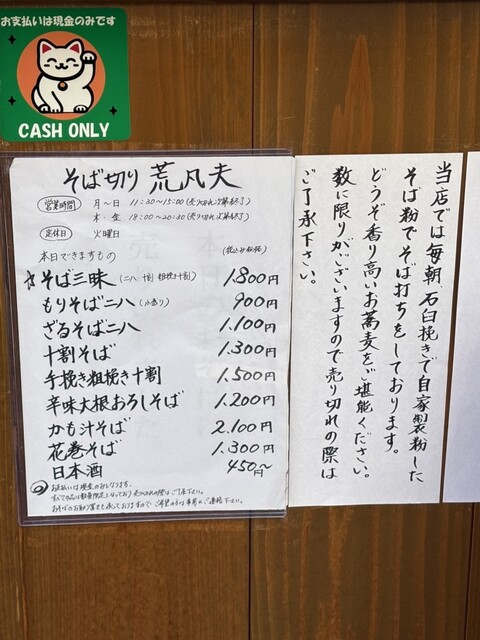 お支払いは現金のみです
CASH ONLY
そば切り 荒凡夫
営業時間 月～日 11:30～15:00(売り切れ次第終了)
木・金 18:00～20:30(売り切れ次第終了)
定休日 火曜日
本日できますもの (税込み価格)
そば三昧 (二八 十割 粗挽き十割) 1.800円
もりそば二八 (小盛り) 900円
ざるそば二八 1.100円
十割そば 1.300円
手挽き粗挽き十割 1.500円
辛味大根おろしそば 1.200円
かも汁そば 2.100円
花巻そば 1.300円
日本酒 450円～
お支払いは現金のみとなります。
すべての品は数量限定となっており売り切れの際はご了承下さい。
当店では毎朝、石臼挽きで自家製粉した
そば粉でそば打ちをしております。
どうぞ香り高いお蕎麦をご堪能ください。
数に限りがございますので売り切れの際は
ご了承下さい。